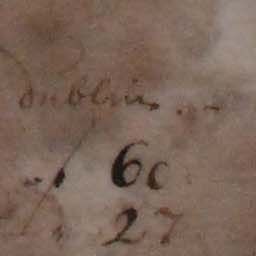 dublin
60
27